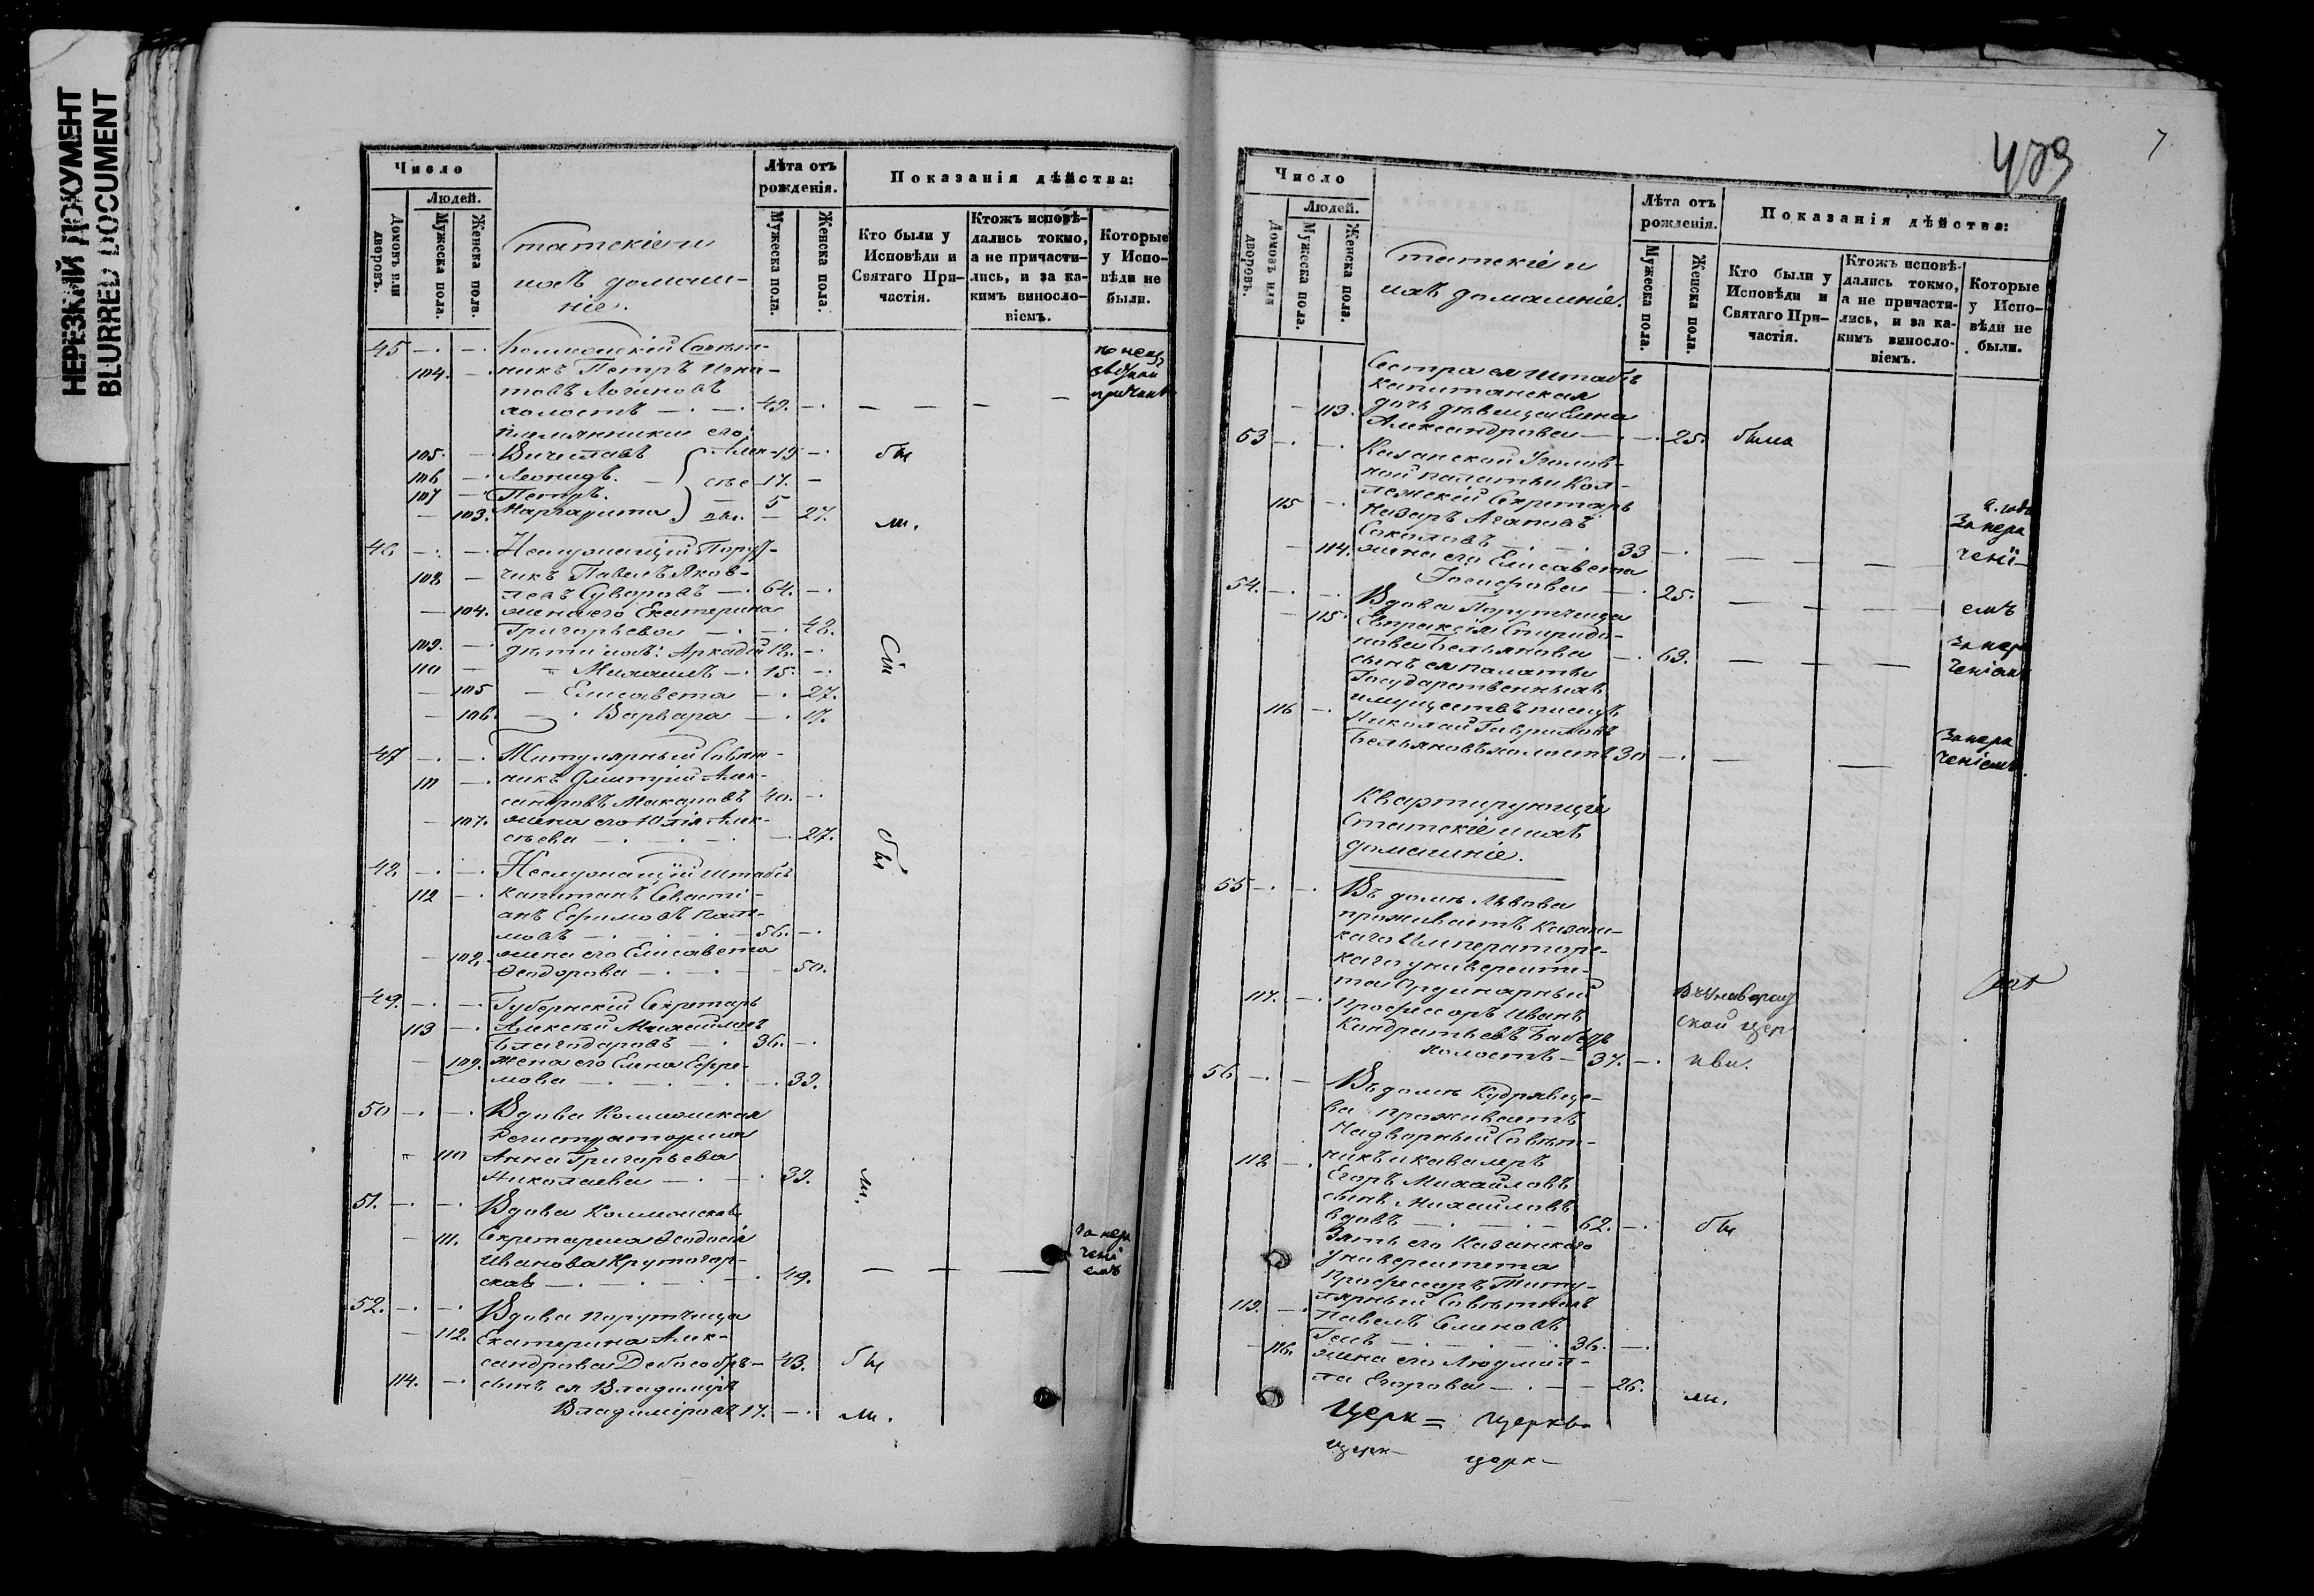 НЕРЕЗКИЙ ДОКУМЕНТ
BLURRED DOCUMENT
Число
Людей.
Домовъ или дворовъ.
Мужеска пола.
Женска пола.
Статскіе и
ихъ домаш-
ніе.
Лѣта отъ рожденія.
Мужеска пола.
Женска пола.
Показанія дѣйства:
Кто были у Исповѣди и Святаго При-частія.
Ктожъ исповѣ-дались токмо, а не причасти-лись, и за ка-кимъ винословіемъ.
Которые у Испо-вѣди не были.
45 —. —. Коллежскій Совѣт-
104. —. никъ Петръ Игна-
товъ Логиновъ
холостъ —. —. 49. —. — — — —
племянники его:
105. —. Вячеславъ Алек- 19 —. бы
106 —. Леонидъ. — сѣе 17. —
107 — Петръ. — 5
— 103. Маргарита — 27. ли.
46 —. —. Неслужащій Пору-
108 — чикъ Павелъ Яков-
левъ Суворовъ —. 64. —.
— 104. жена его Екатерина
Григорьева —. —. 48.
109. —. дѣти ихъ: Аркадій 18. —.
110 —. Михаилъ —. 15. —.
— 105 — Елисавета —. 27.
— 106. —. Варвара —. 17.
47 —. —. Титулярный Совѣт-
111 —. никъ Дмитрій Алек-
сандровъ Макаровъ 40. —.
— 107. жена его Юлія Алек-
сѣева —. —. — 27. бы
48 —. —. Неслужащій Штабсъ
112 —. капитанъ Севасті-
анъ Ефимовъ
— 56. —.
— 108. жена его Елисавета
Ѳеодорова —. —. — 50.
49. —. —. Губернскій Секретарь
113 —. Алексѣй Михайловъ
Благодаровъ —. 36. —.
— 109. жена его Елена Ефре-
мова —. —. —. 33.
50 —. —. Вдова Коллежская
Регистраторша
110 Анна Григорьева
Николаева —. —. 39. ли.
51. —. —. Вдова Коллежская
— 111. Секретарша Ѳеодосія
Иванова Крутогор-
ская —. —. —. 49. — — —
52. —. —. Вдова Поручица
— 112. Екатерина Алек-
сандрова — 43. бы
114. —. сынъ ея Владиміръ
Владиміровъ 17. —. ли.
7
Число
Людей.
Домовъ или дворовъ.
Мужеска пола.
Женска пола.
Статскіе и
ихъ домашніе.
Лѣта отъ рожденія.
Мужеска пола.
Женска пола.
Показанія дѣйства:
Кто были у Исповѣди и Святаго При-частія.
Ктожъ исповѣ-дались токмо, а не причасти-лись, и за ка-кимъ винословіемъ.
Которые у Испо-вѣди не были.
Сестра ея Штабсъ
Капитанская
— 113. дочь дѣвица Елена
Александрова —. —. 25. была
53 —. —. Казанской Уголов-
ной Палаты Кол-
лежскій Секретарь
115 —. Назаръ Агаповъ
Соколовъ —. —. 33 —. — — —
— 114. жена его Елисавета
Іосифова —. 25. — — —
54. —. —. Вдова Поручица
— 115. Евпраксія Спиридо-
нова Бельянова —. 63. — — —
сынъ ея Палаты
Государственныхъ
имуществъ писецъ
116 —. Николай Гавриловъ
Бельяновъ холостъ 30 —. — —
За нера
ченіемъ.
Квартирующіе
Статскіе и ихъ
домашніе.
55 —. —. Въ домѣ Львова
проживаетъ Казан-
скаго Императорс-
каго университе-
та Ординарный
117. —. Профессоръ Иванъ
Кондратьевъ Бабстъ
холостъ — 37. —.
56 —. — Въ домѣ Кудрявце-
ва проживаетъ
Надворный Совѣт-
118 —. никъ и кавалеръ
Егоръ Михайловъ
сынъ Михайловъ
вдовъ —. —. — 62. —. бы
Зять его Казанскаго
Университета
Профессоръ Титу-
119. —. лярный Совѣтникъ
Павелъ Семеновъ
—. —. 36. —.
— 116. жена его Людмил-
ла Егорова —. — — 26. ли.
Церк = Церковь
церк- церк-